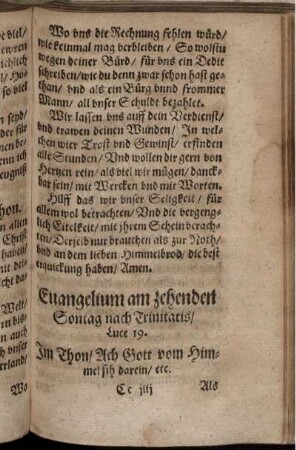 Wo vns die Rechnung fehlen würd/
wie keinmal mag verbleiben / So wolstu
wegen deiner Bürd / für vns ein Dedit
schreiben/wie du denn zwar schon hast ge-
than / vnd als ein Bürg vnnd frommer
Mann / all vnser Schuldt bezahlet.
Wir lassen vns auff dein Verdienst/
vnd trawen deinen Wunden / In wel-
chen wier Trost vnd Gewinst / erfinden
alle Stunden / Vnd wollen dir gern von
Hertzen rein / als viel wir mügen / danck-
bar sein / mit Wercken vnd mit Worten.
Hilff das wir vnser Seligkeit / für
allem wol betrachten / Vnd die vergeng-
lich Eitelkeit / mit jhrem Schein verach-
ten / Derzeib nur brauchen als zur Noth/
vnd an dem lieben Himmelbrod / die best
erquickung haben / Amen.
Euangelium am zehenden
Sontag nach Trinitatis /
Luce 19.
Im Thon / Ach Gott vom Him-
mel sih darein / etc.
Cc iiij Als
Wo